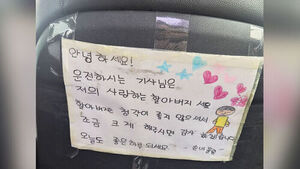 안녕하세요!
운전하시는 기사님은
저의 사랑하는 할아버지 세요
할아버지는 청각이 좋지 않으셔서
조금 크게 해주시면 감사 하겠습니다
오늘도 좋은하루 되세요